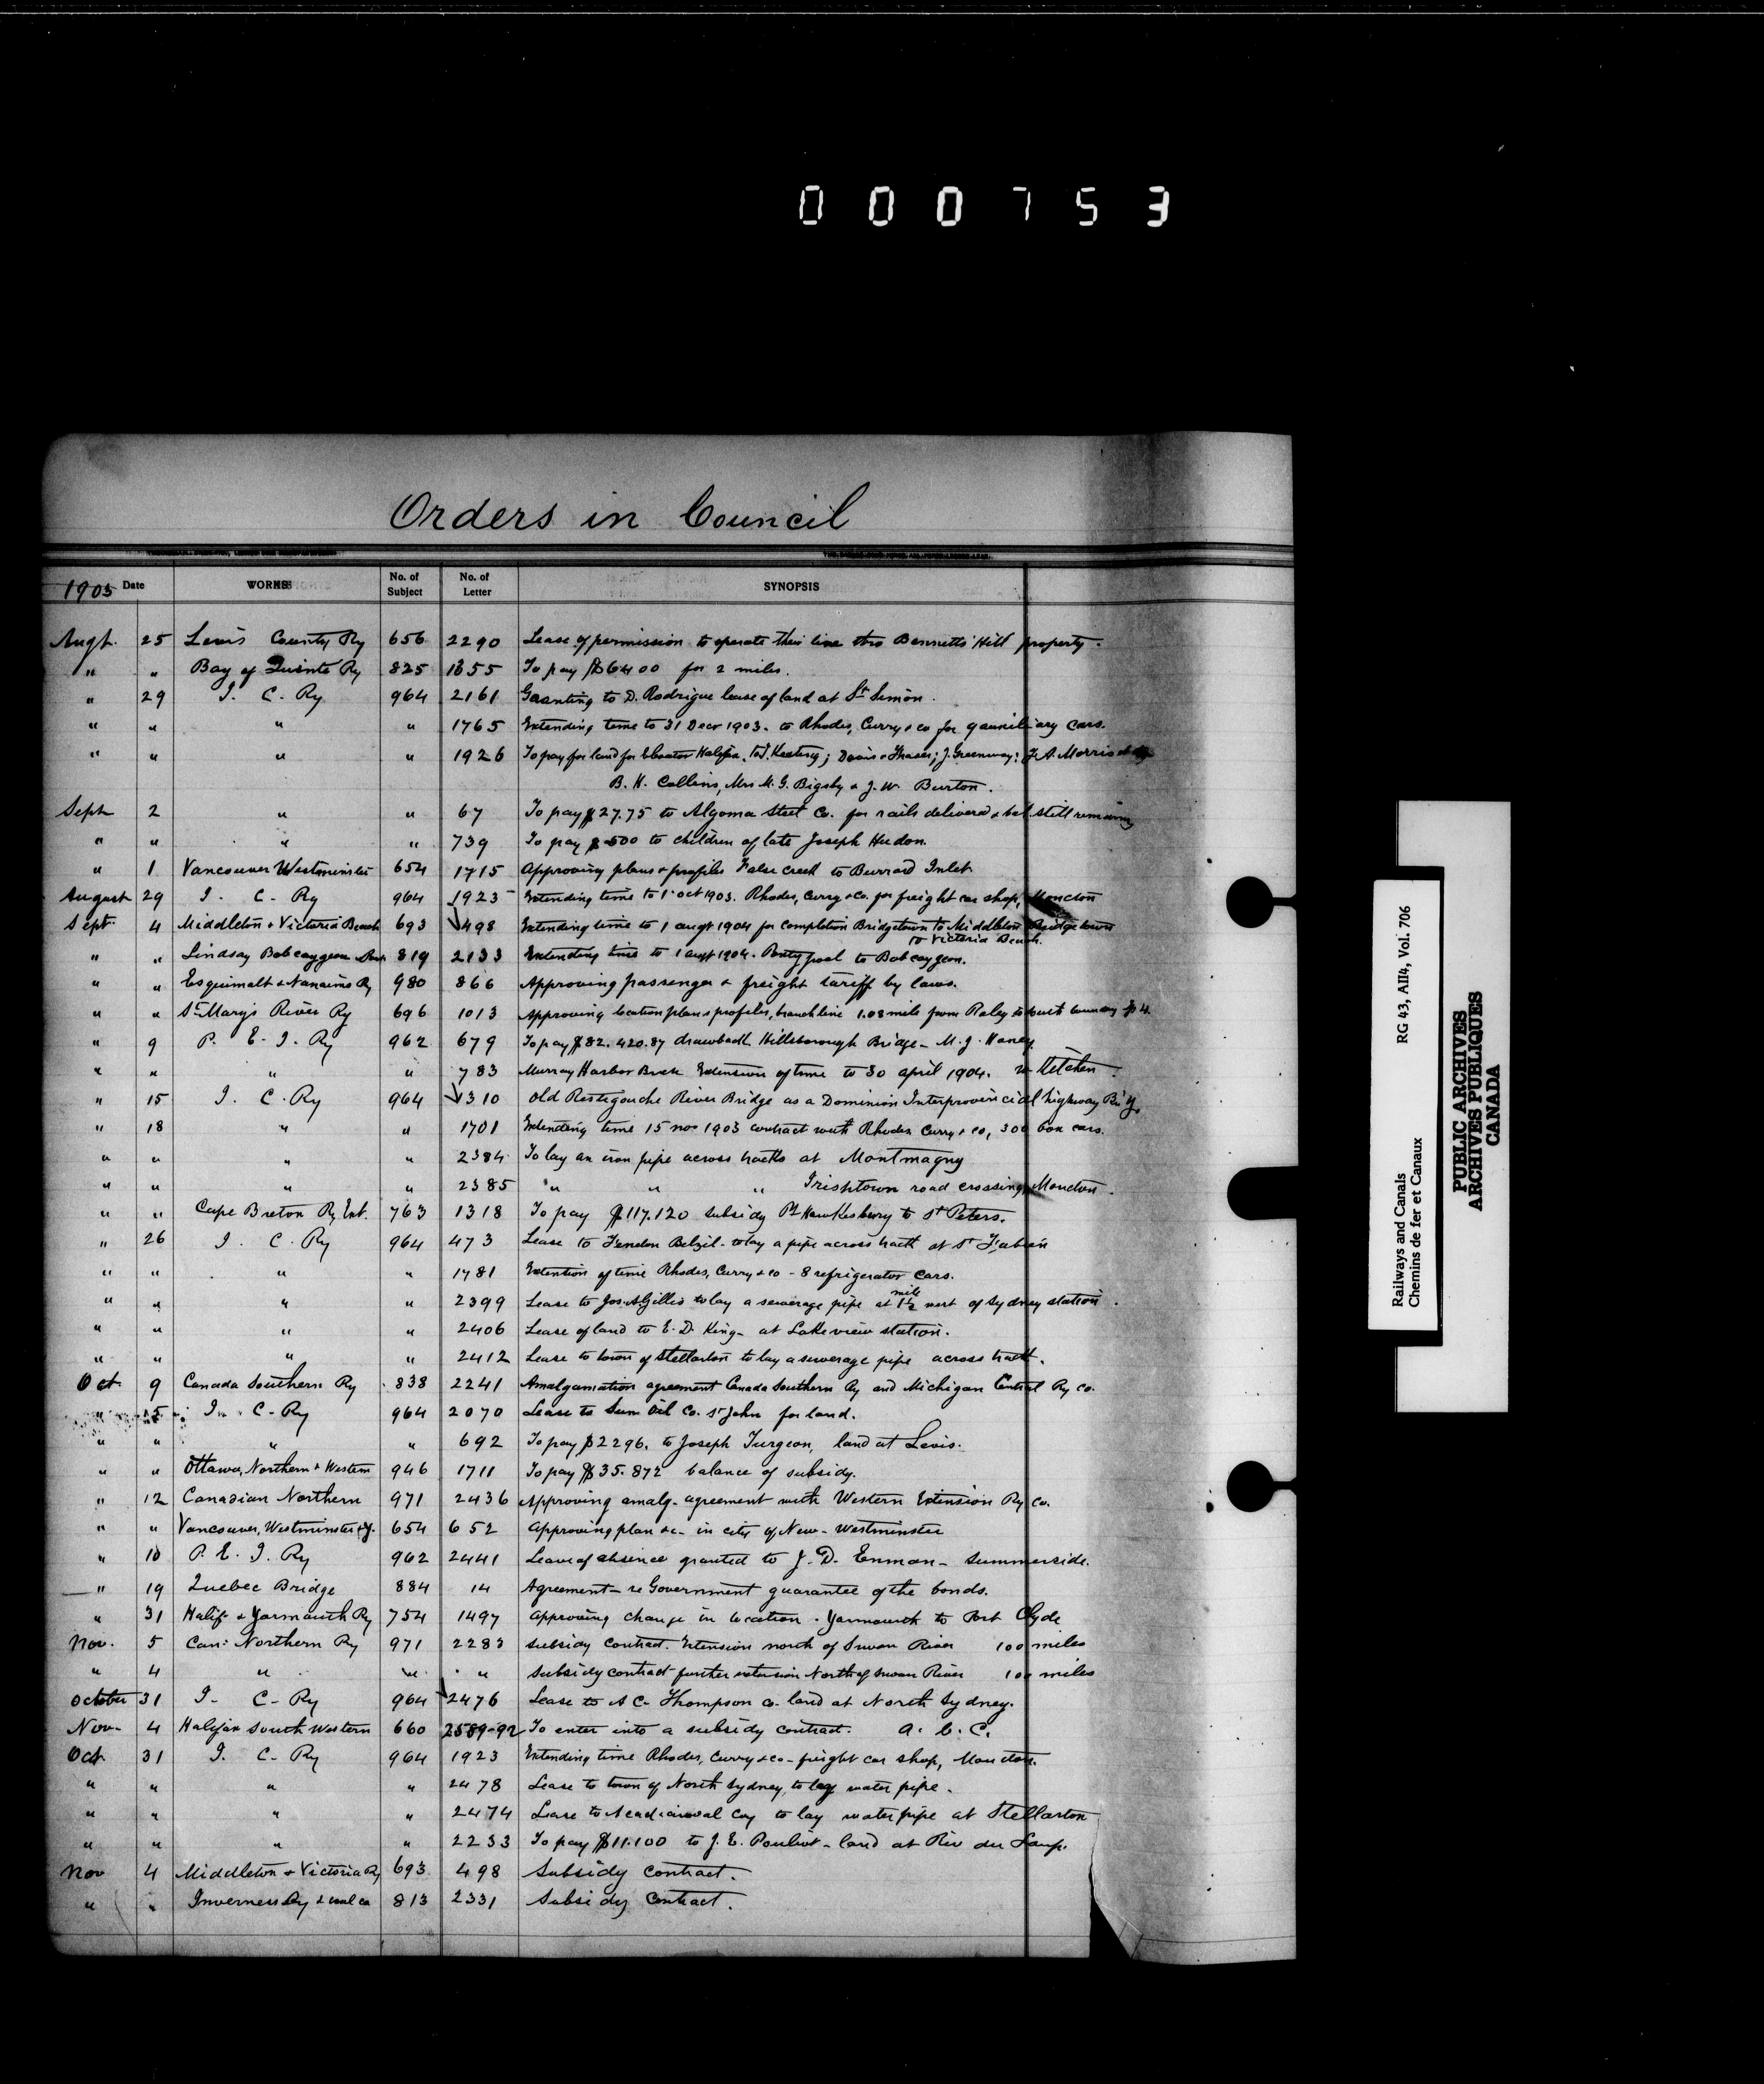 000753
Orders in Council
1903 Date WORKS No. of Subject No. of Letter SYNOPSIS
Augt. 25 Levis County Ry 656 2290 Lease of permission to operate their line thro Bennetts' Hill property.
" " Bay of Quinte Ry 825 1355 To pay $6400 for 2 miles.
" 29 I. C. Ry 964 2161 Granting to D. Rodrigue lease of land at St Simon.
" " " " 1765 Extending time to 31 Decr 1903. to Rhodes, Curry & co for 9 auxiliary cars.
" " " " 1926 To pay for land for Elevator Halifax, Keating; Davis & Fraser; J. Greenway; J. A. Morris
B. H. Collins, Mrs M. G. Bigsby & J. W. Burton.
Sept 2 " " 67 To pay $27.75 to Algoma Steel Co. for rails delivered & bal still remaining
" " " " 739 To pay $500 to children of late Joseph Hudon.
" 1 Vancouver Westminster 654 1715 Approving plans & profiles False Creek to Burrard Inlet
August 29 I. C. Ry 964 1923 Extending time to 1st Oct 1903. Rhodes, Curry & Co. for freight car shop, Moncton
Sept. 4 Middleton & Victoria Beach 693 498 Extending time to 1 augt 1904 for completion Bridgetown to Middleton Bridgetown
to Victoria Beach.
" " Lindsay Bobcaygeon 819 2133 Extending time to 1 augt 1904. Pontypool to Bobcaygeon.
" " Esquimalt & Nanaimo Ry 980 866 Approving passenger & freight tariff by laws.
" " St Mary's River Ry 696 1013 Approving location plans & profiles, branch line 1.08 mile from Raley to
" 9 P. E. I. Ry 962 679 To pay $82.420.87 drawback Hillsborough Bridge - M. J. Haney
" " " " 783 Murray Harbor Brch Extension of time to 30 april 1904. W Kitchen.
" 15 I. C. Ry 964 1310 Old Restigouche River Bridge as a Dominion Interprovincial highway Bri'g.
" 18 " " 1701 Extending time 15 nov 1903 contract with Rhodes Curry & co, 300 box cars.
" " " " 2384 To lay an iron pipe across tracks at Montmagny
" " " " 2385 " " " Irishtown road crossing, Moncton.
" " Cape Breton Ry Ext. 763 1318 To pay $117.120 subsidy Pt Hawkesbury to St Peters.
" 26 I. C. Ry 964 473 Lease to Fenelon Belzil - to lay a pipe across track at St Fabien
" " " " 1781 Extention of time Rhodes, Curry & co - 8 refrigerator cars.
" " " " 2399 Lease to Jos. A. Gillis to lay a sewerage pipe at 1½ mile west of Sydney station.
" " " " 2406 Lease of land to E. D. King - at Lakeview station.
" " " " 2412 Lease to town of Stellarton to lay a sewerage pipe across track.
Oct 9 Canada Southern Ry 838 2241 Amalgamation agreement Canada Southern Ry and Michigan Central Ry Co.
" 15 I. C. Ry 964 2070 Lease to Sun Oil Co. St John for land.
" " " " 692 To pay $2296. to Joseph Turgeon, land at Levis.
" " Ottawa, Northern & Western 946 1711 To pay $35.872 balance of subsidy.
" 12 Canadian Northern 971 2436 Approving amalg. agreement with Western Extension Ry Co.
" " Vancouver, Westminster & Y. 654 652 Approving plan &c - in city of New-Westminster
" 10 P. E. I. Ry 962 2441 Leave of absence granted to J. D. Enman - Summerside.
" 19 Quebec Bridge 884 14 Agreement - re Government guarantee of the bonds.
" 31 Halif & Yarmouth Ry 754 1497 Approving change in location. Yarmouth to Port Clyde
Nov. 5 Can: Northern Ry 971 2283 Subsidy contract. Extension north of Swan River 100 miles
" 4 " " " Subsidy contract further extension North of Swan River 100 miles
October 31 I. C. Ry 964 2476 Lease to A C. Thompson Co. land at North Sydney.
Nov. 4 Halifax South Western 660 2589-92 To enter into a subsidy contract. a. b. c.
Oct. 31 I. C. Ry 964 1923 Extending time Rhodes, Curry & co - freight car shop, Moncton.
" " " " 2478 Lease to town of North Sydney, to lay water pipe.
" " " " 2474 Lease to Acadia coal Coy to lay water pipe at Stellarton
" " " " 2233 To pay $11.100 to J. E. Pouliot - land at Riv du Loup.
Nov 4 Middleton & Victoria Ry 693 498 Subsidy contract.
" " Inverness Ry & coal co 813 2331 Subsidy contract.
Railways and Canals RG 43, AII4, Vol. 706
Chemins de fer et Canaux
PUBLIC ARCHIVES
ARCHIVES PUBLIQUES
CANADA